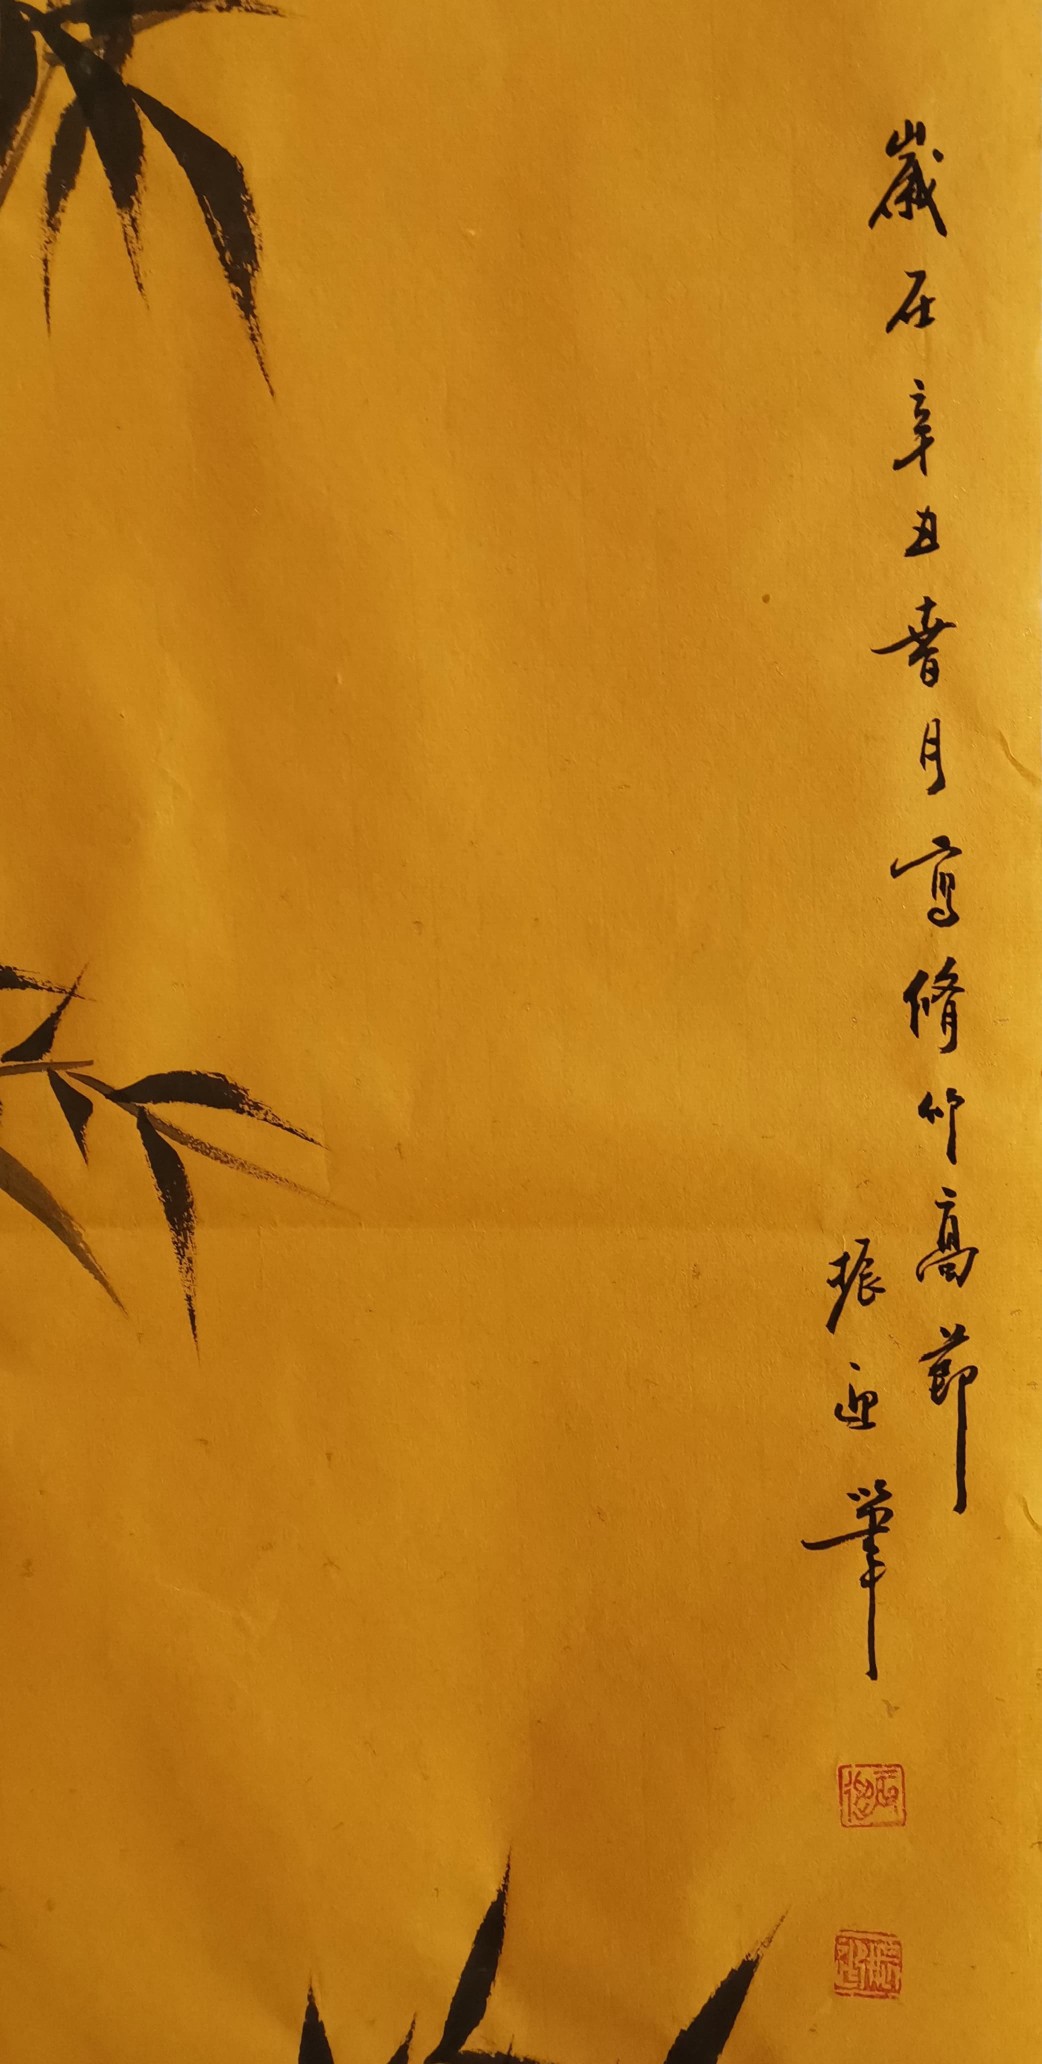 歲在辛丑春月寫脩竹高節
振迎筆